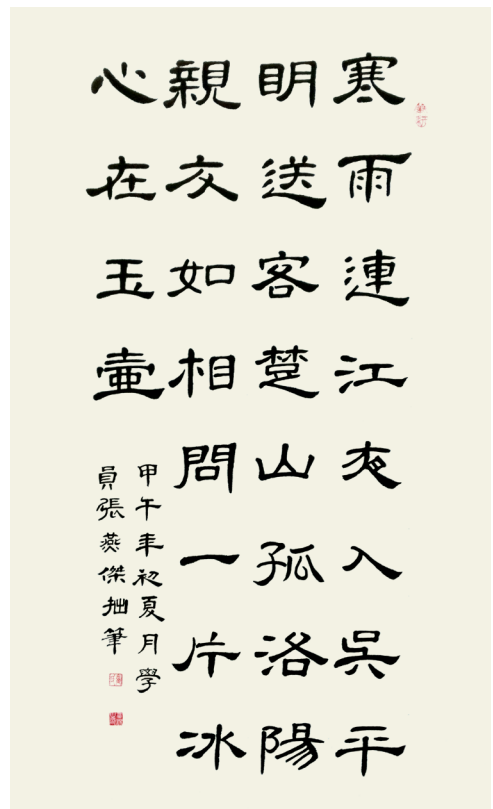 寒雨連江夜入吳平
明送客楚山孤洛陽
親友如相問一片冰
心在玉壺
甲午年初夏月學
員張燕傑拙筆